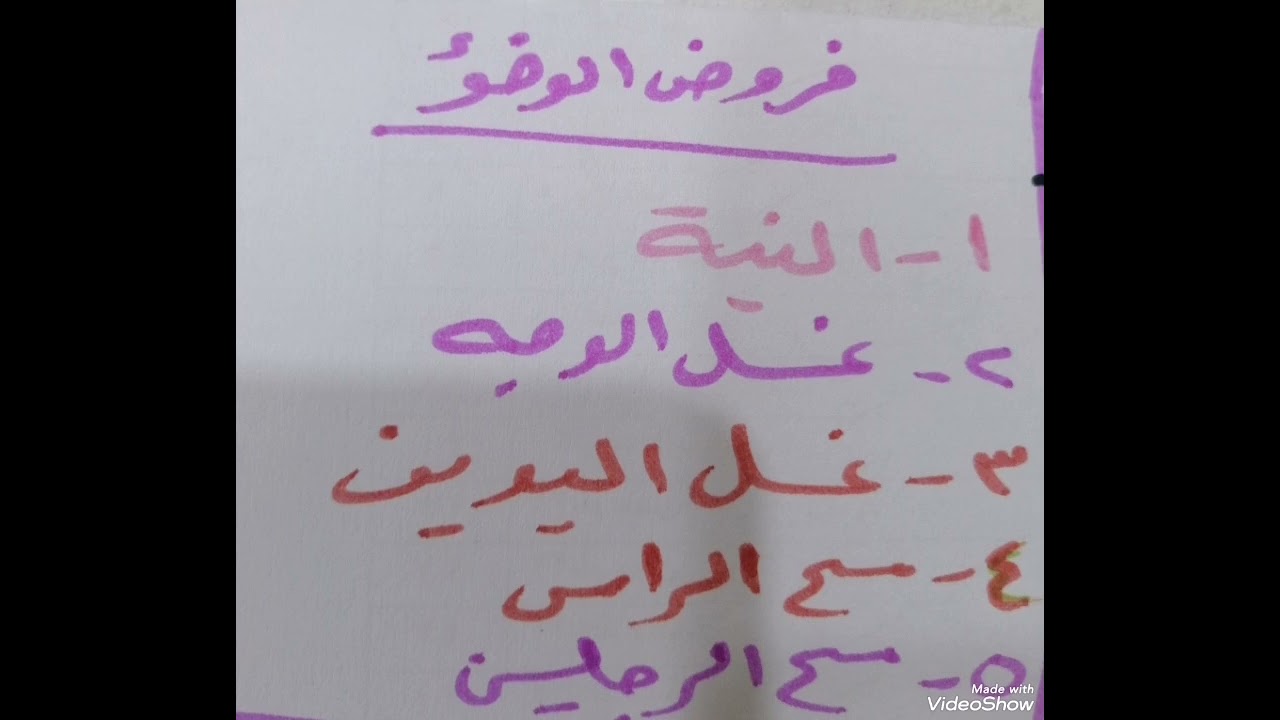 فروض الوضوُ
١- النية
٢- غسل الوجه
٣- غسل اليدين
٤- مسح الراس
٥- مسح الرجلين
Made with
VideoShow